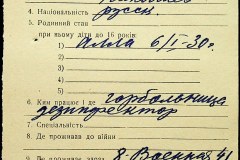 4. Національність русск.
5. Родинний стан
при ньому діти до 16 років:
1) Алла 6/I-30г.
2)
3)
4)
5)
6. Ким працює і де горбольница
дезинфектор
7. Спеціальність
8. Де проживав до війни
9. Де проживає зараз 8. Военная 41